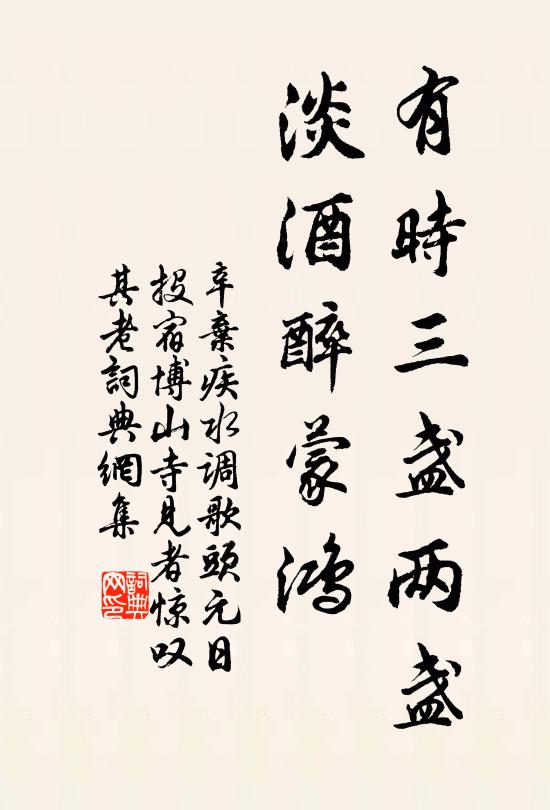 有時三盏两盏
淡酒醉蒙鸿
辛棄疾水调歌頭元日
投宿博山寺见者惊叹
其老詞典網集
詞典网印